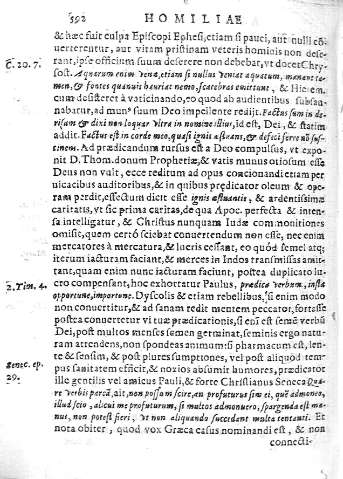 592 HOMILIAE
& hæc fuit culpa Episcopi Ephesi, etiam si pauci, aut nulli cõ-
uerterentur, aut vitam pristinam veteris hominis non dese-
rant, ipse officium suum deserere non debebat, vt docet Chry-
sost. Aquarum enim venæ, etiam si nullus veniat aquatum, manant ta-
men, & fontes quanuis hauriat nemo, scatebras emittunt, & Hierem.
cum desisteret à vaticinando, eo quod ab audientibus subsan-
nabatur, ad munus suum Deo impellente redijt. Factus sum in de-
risum & dixi non loquar vltra in nomine illius, id est, Dei, & statim
addit. Factus est in corde meo, quasi ignis æstuans, & defeci ferre nõ sus-
tinens. Ad prædicandum rursus est a Deo compulsus, vt expo-
nit D. Thom. donum Prophetiæ, & vatis munus otiosum esse
Deus non vult, ecce reditum ad opus concionandi etiam per-
uicacibus auditoribus, & in quibus prædicator oleum & ope-
ram perdit, effectum dicit esse ignis æstuantis, & ardentissimæ
caritatis, vt sic prima caritas, de qua Apoc. perfecta & inten-
sa intelligatur, & Christus nunquam Iudæ commonitiones
omisit, quem certò sciebat conuertendum non esse, nec enim
mercatores à mercatura, & lucris cessant, eo quòd semel atq;
iterum iacturam faciant, & merces in Indos transmissas amit-
tant, quam enim nunc iacturam faciunt, postea duplicato lu-
cro compensant, hoc exhortatur Paulus, prædica verbum, insta
opportune, importune. Dyscolis & etiam rebellibus, si enim modo
non conuertitur, & ad sanam redit mentem peccator, fortasse
postea conuertetur vi tuæ prædicationis, si enī est semē verbũ
Dei, post multos menses semen germinat, seminis ergo natu-
ram attendens, non spondeas animum: si pharmacum est, len-
te & sensim, & post plures sumptiones, vel post aliquod tem-
pus sanitatem efficit, & noxios absumit humores, prædicator
ille gentilis vel amicus Pauli, & forte Christianus Seneca Qua-
re verbis parcã, ait, non possum scire, an profuturus sim ei, quē admoneo,
illud scio, alicui me profuturum, si multos admonuero, spargenda est ma-
nus, non potest fieri, vt non aliquando succedant multa tentanti. Et
nota obiter, quod vox Græca casus nominandi est, & non
connecti-
C. 20. 7.
2. Tim. 4.
Senec. ep.
29.